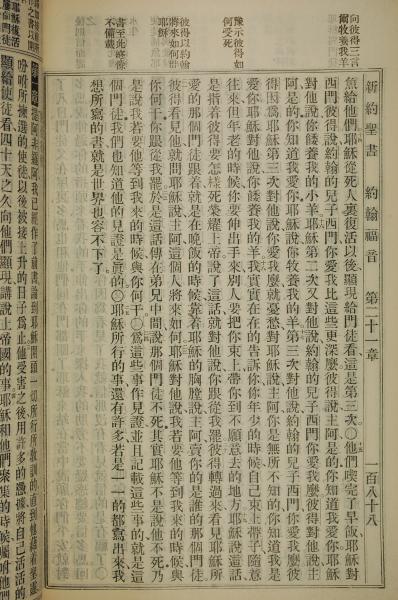 新約聖書 約翰福音 第二十一章 一百八十八
向彼得三言
爾牧養我羊
魚給他們耶穌從死人裏復活以後顯現給門徒看這是第三次○他們喫完了早飯耶穌對
西門彼得說約翰的兒子西門你愛我比這些更深麼彼得說主阿是的你知道我愛你耶穌
對他說你餧養我的小羊耶穌第二次又對他說約翰的兒子西門你愛我麼彼得對他說主
阿是的你知道我愛你耶穌說你牧養我的羊第三次對他說約翰的兒子西門你愛我麼彼
得因爲耶穌第三次對他說你愛我麼就憂愁對耶穌說主阿你是無所不知的你知道我是
愛你耶穌對他說你餧養我的羊我實實在在的告訴你你年少的時候自己束上帶子隨意
豫示彼得如
何受死
往來但年老的時候你要伸出手來別人要把你束上帶你到不願意去的地方耶穌說這話
是指着彼得要怎樣死榮耀上帝說了這話就對他說你跟從我罷彼得轉過來看見耶穌所
愛的那個門徒跟着就是在晚飯的時候靠着耶穌的胸膛說主阿賣你的是誰的那個門徒
彼得以約翰
將來如何問
耶穌
彼得看見他就問耶穌說主阿這個人將來如何耶穌對他說我若要他等到我來的時候與
你何干你跟從我罷於是這話傳在弟兄中間說那個門徒不死其實耶穌不是說他不死乃
是說我若要他等到我來的時候與你何干○爲這些事作見證並且記載這些事的就是這
書至此終餘
不備載
個門徒我們也知道他的見證是眞的○耶穌所行的事還有許多若是一一的都寫出來我
想所寫的書就是世界也容不下了
提阿非羅阿我已經作了前書論到耶穌開頭一切所行所教訓的直到他藉着聖靈
吩咐所揀選的使徒以後被接上升的日子爲止他受害之後用許多的憑據將自己活活的
顯給使徒看四十天之久向他們顯現講說上帝國的事耶穌和他們聚集的時候囑咐他們